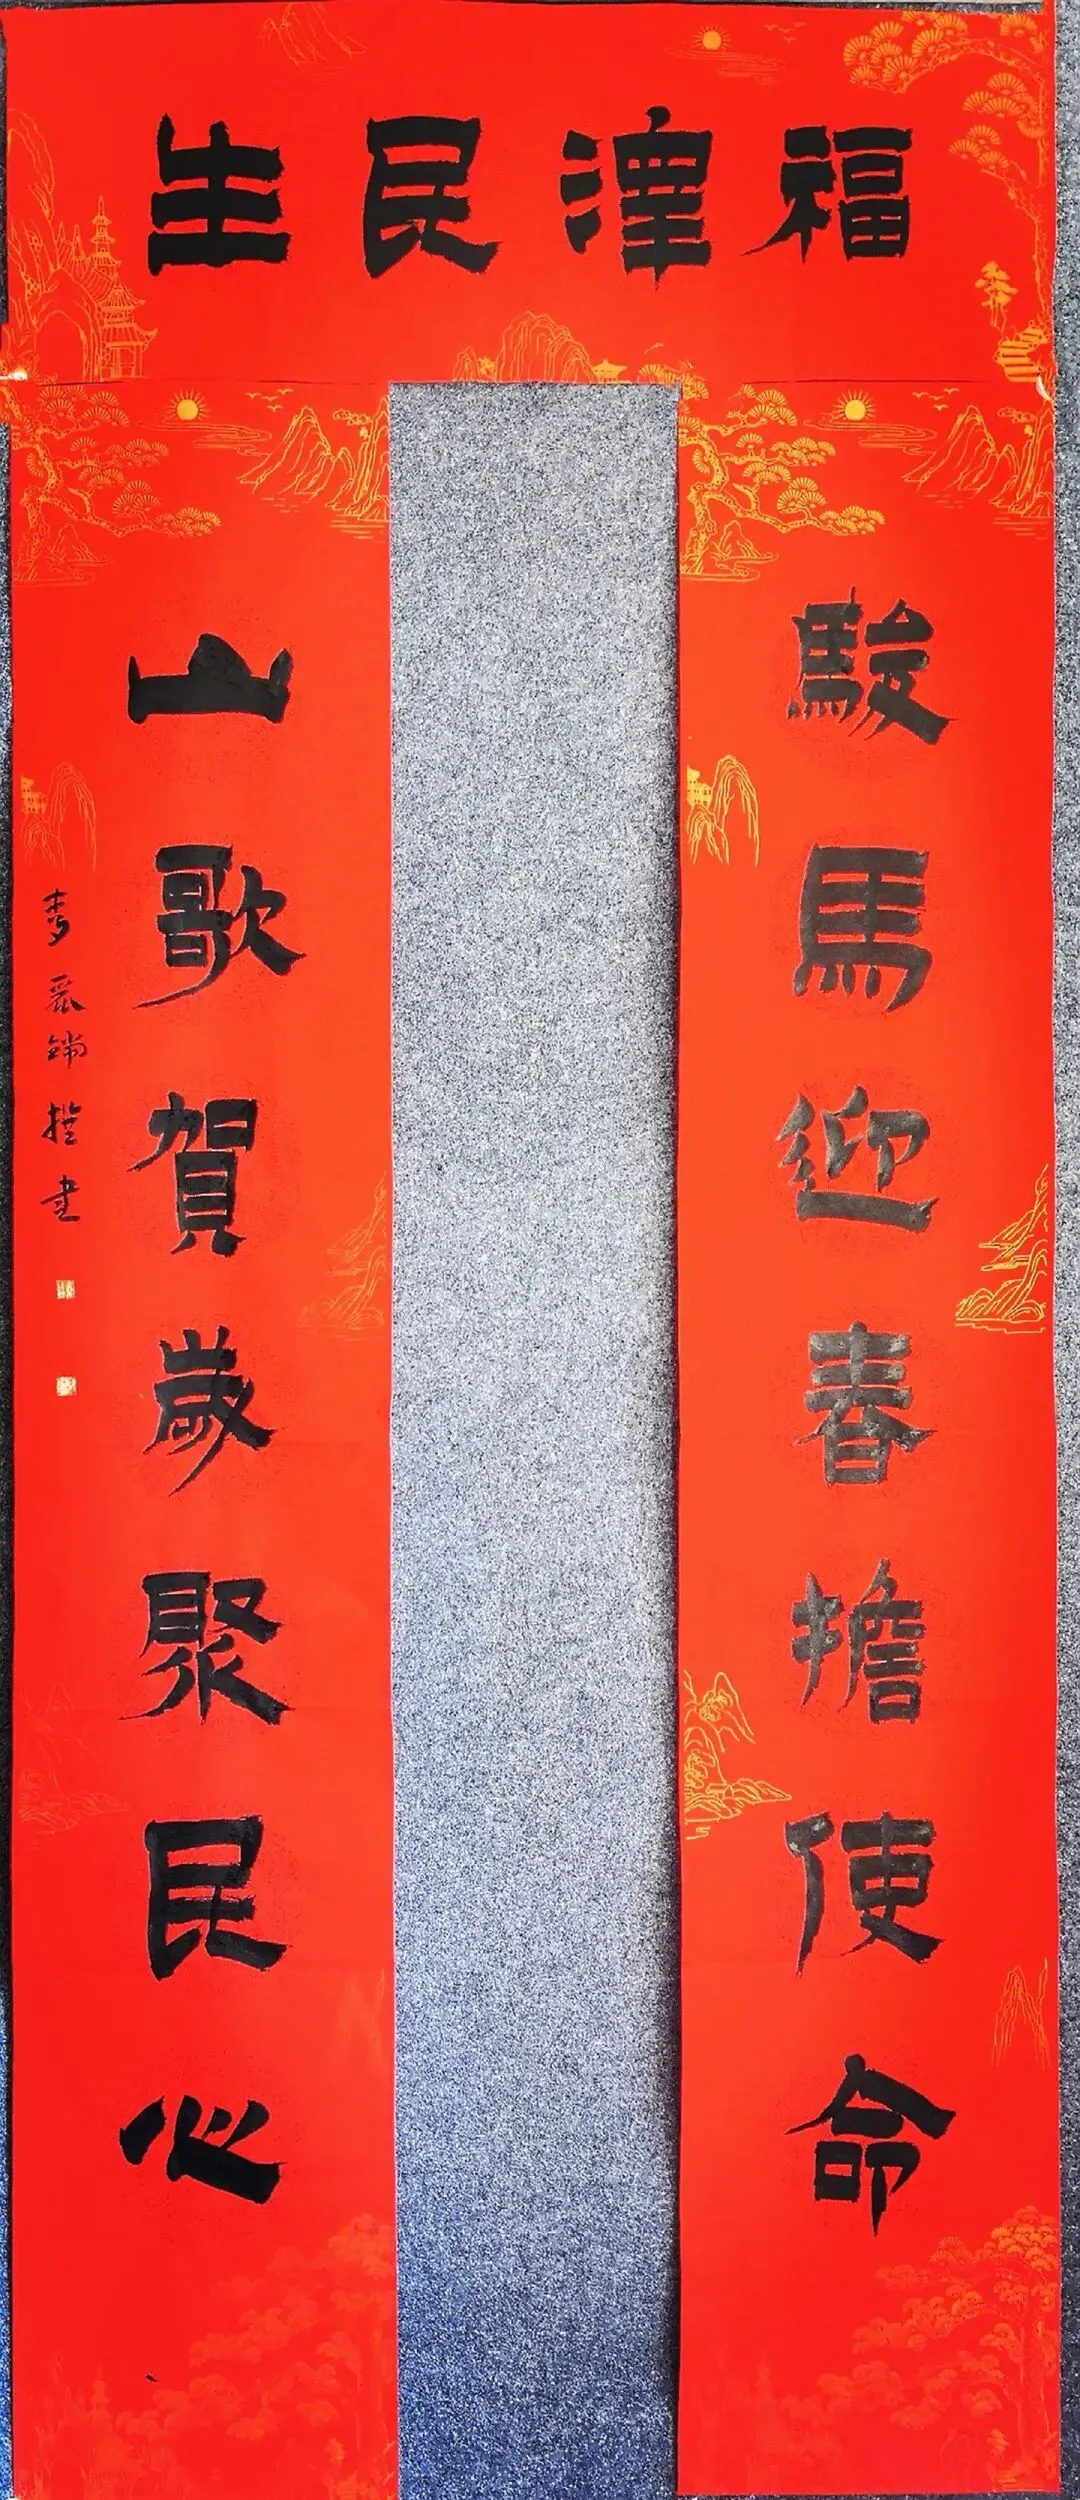 福澤民生
駿馬迎春擔使命
山歌賀歲聚民心
撰書